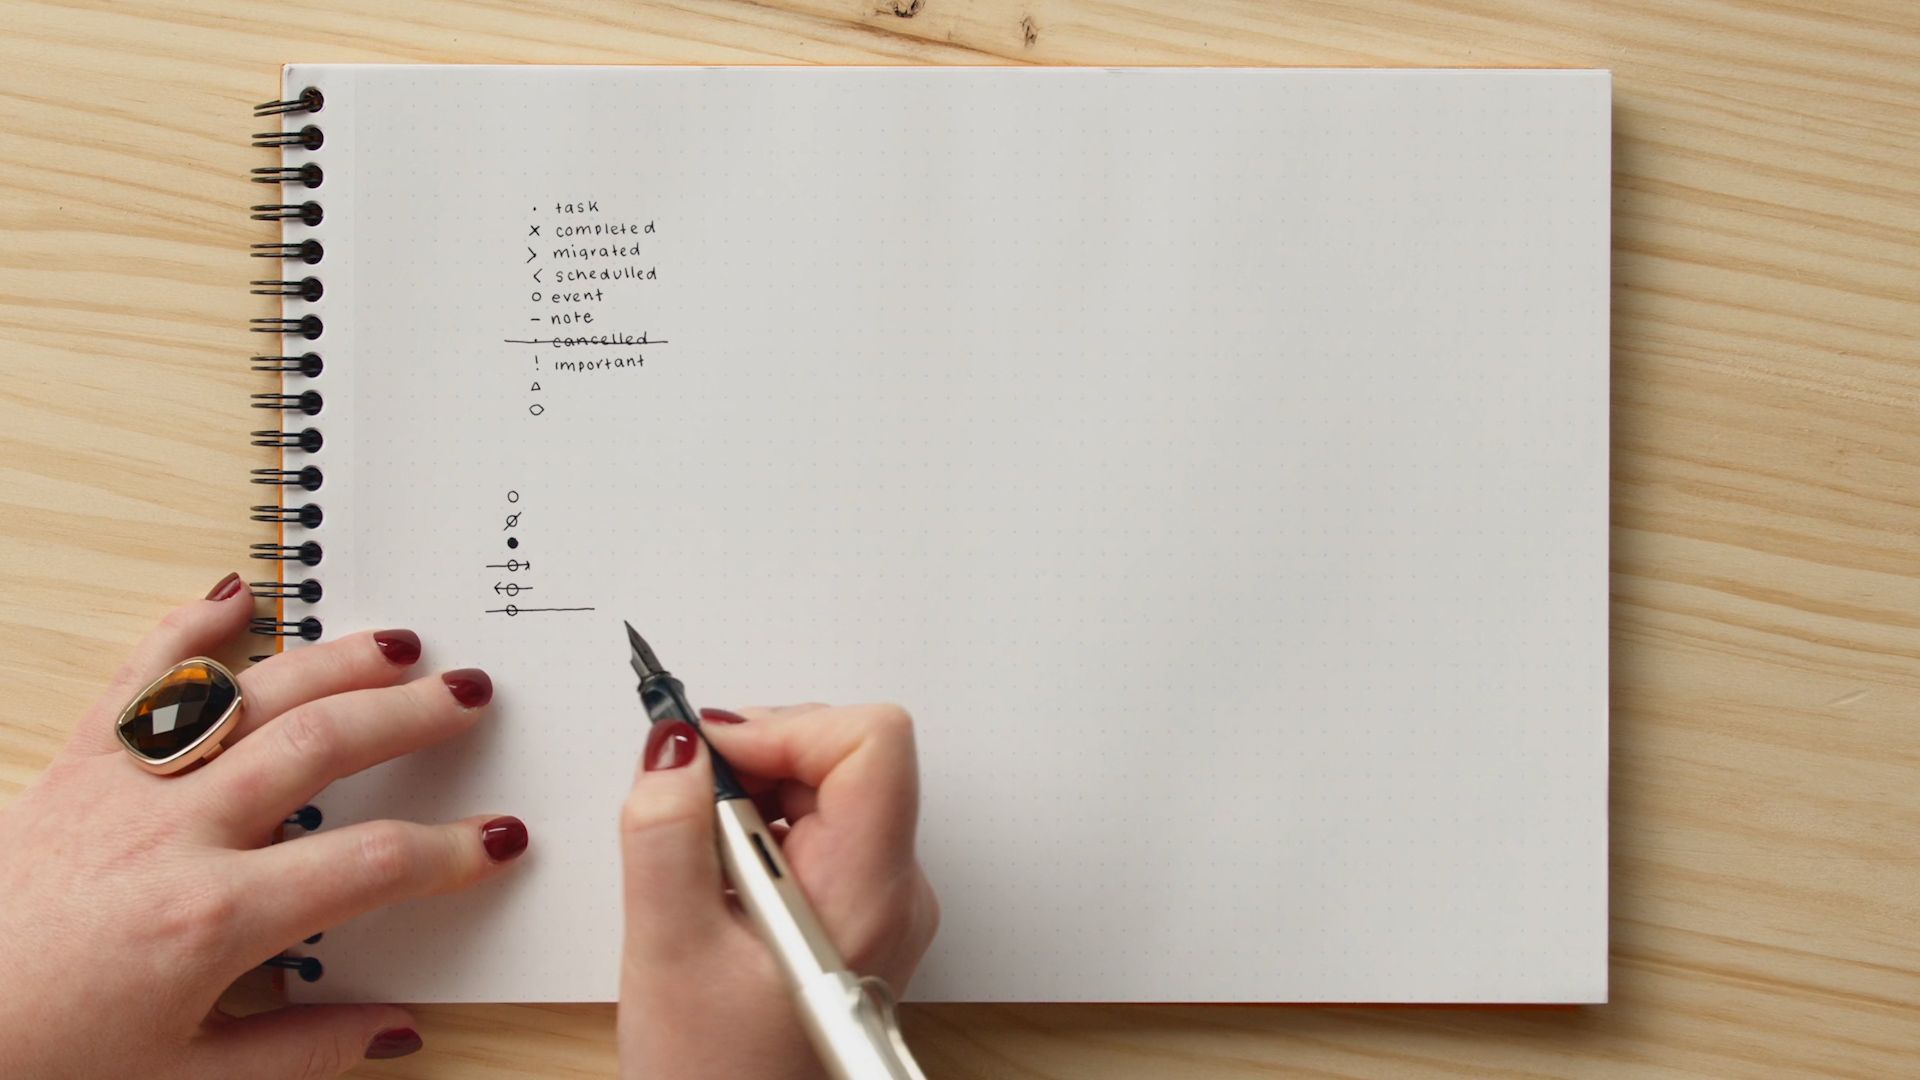 · task
x completed
> migrated
< schedulled
o event
– note
· cancelled
! important